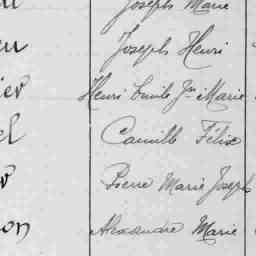 Joseph Marie
Joseph Henri
Henri Emile Jn Marie
Camille Félix
Pierre Marie Joseph
Alexandre Marie